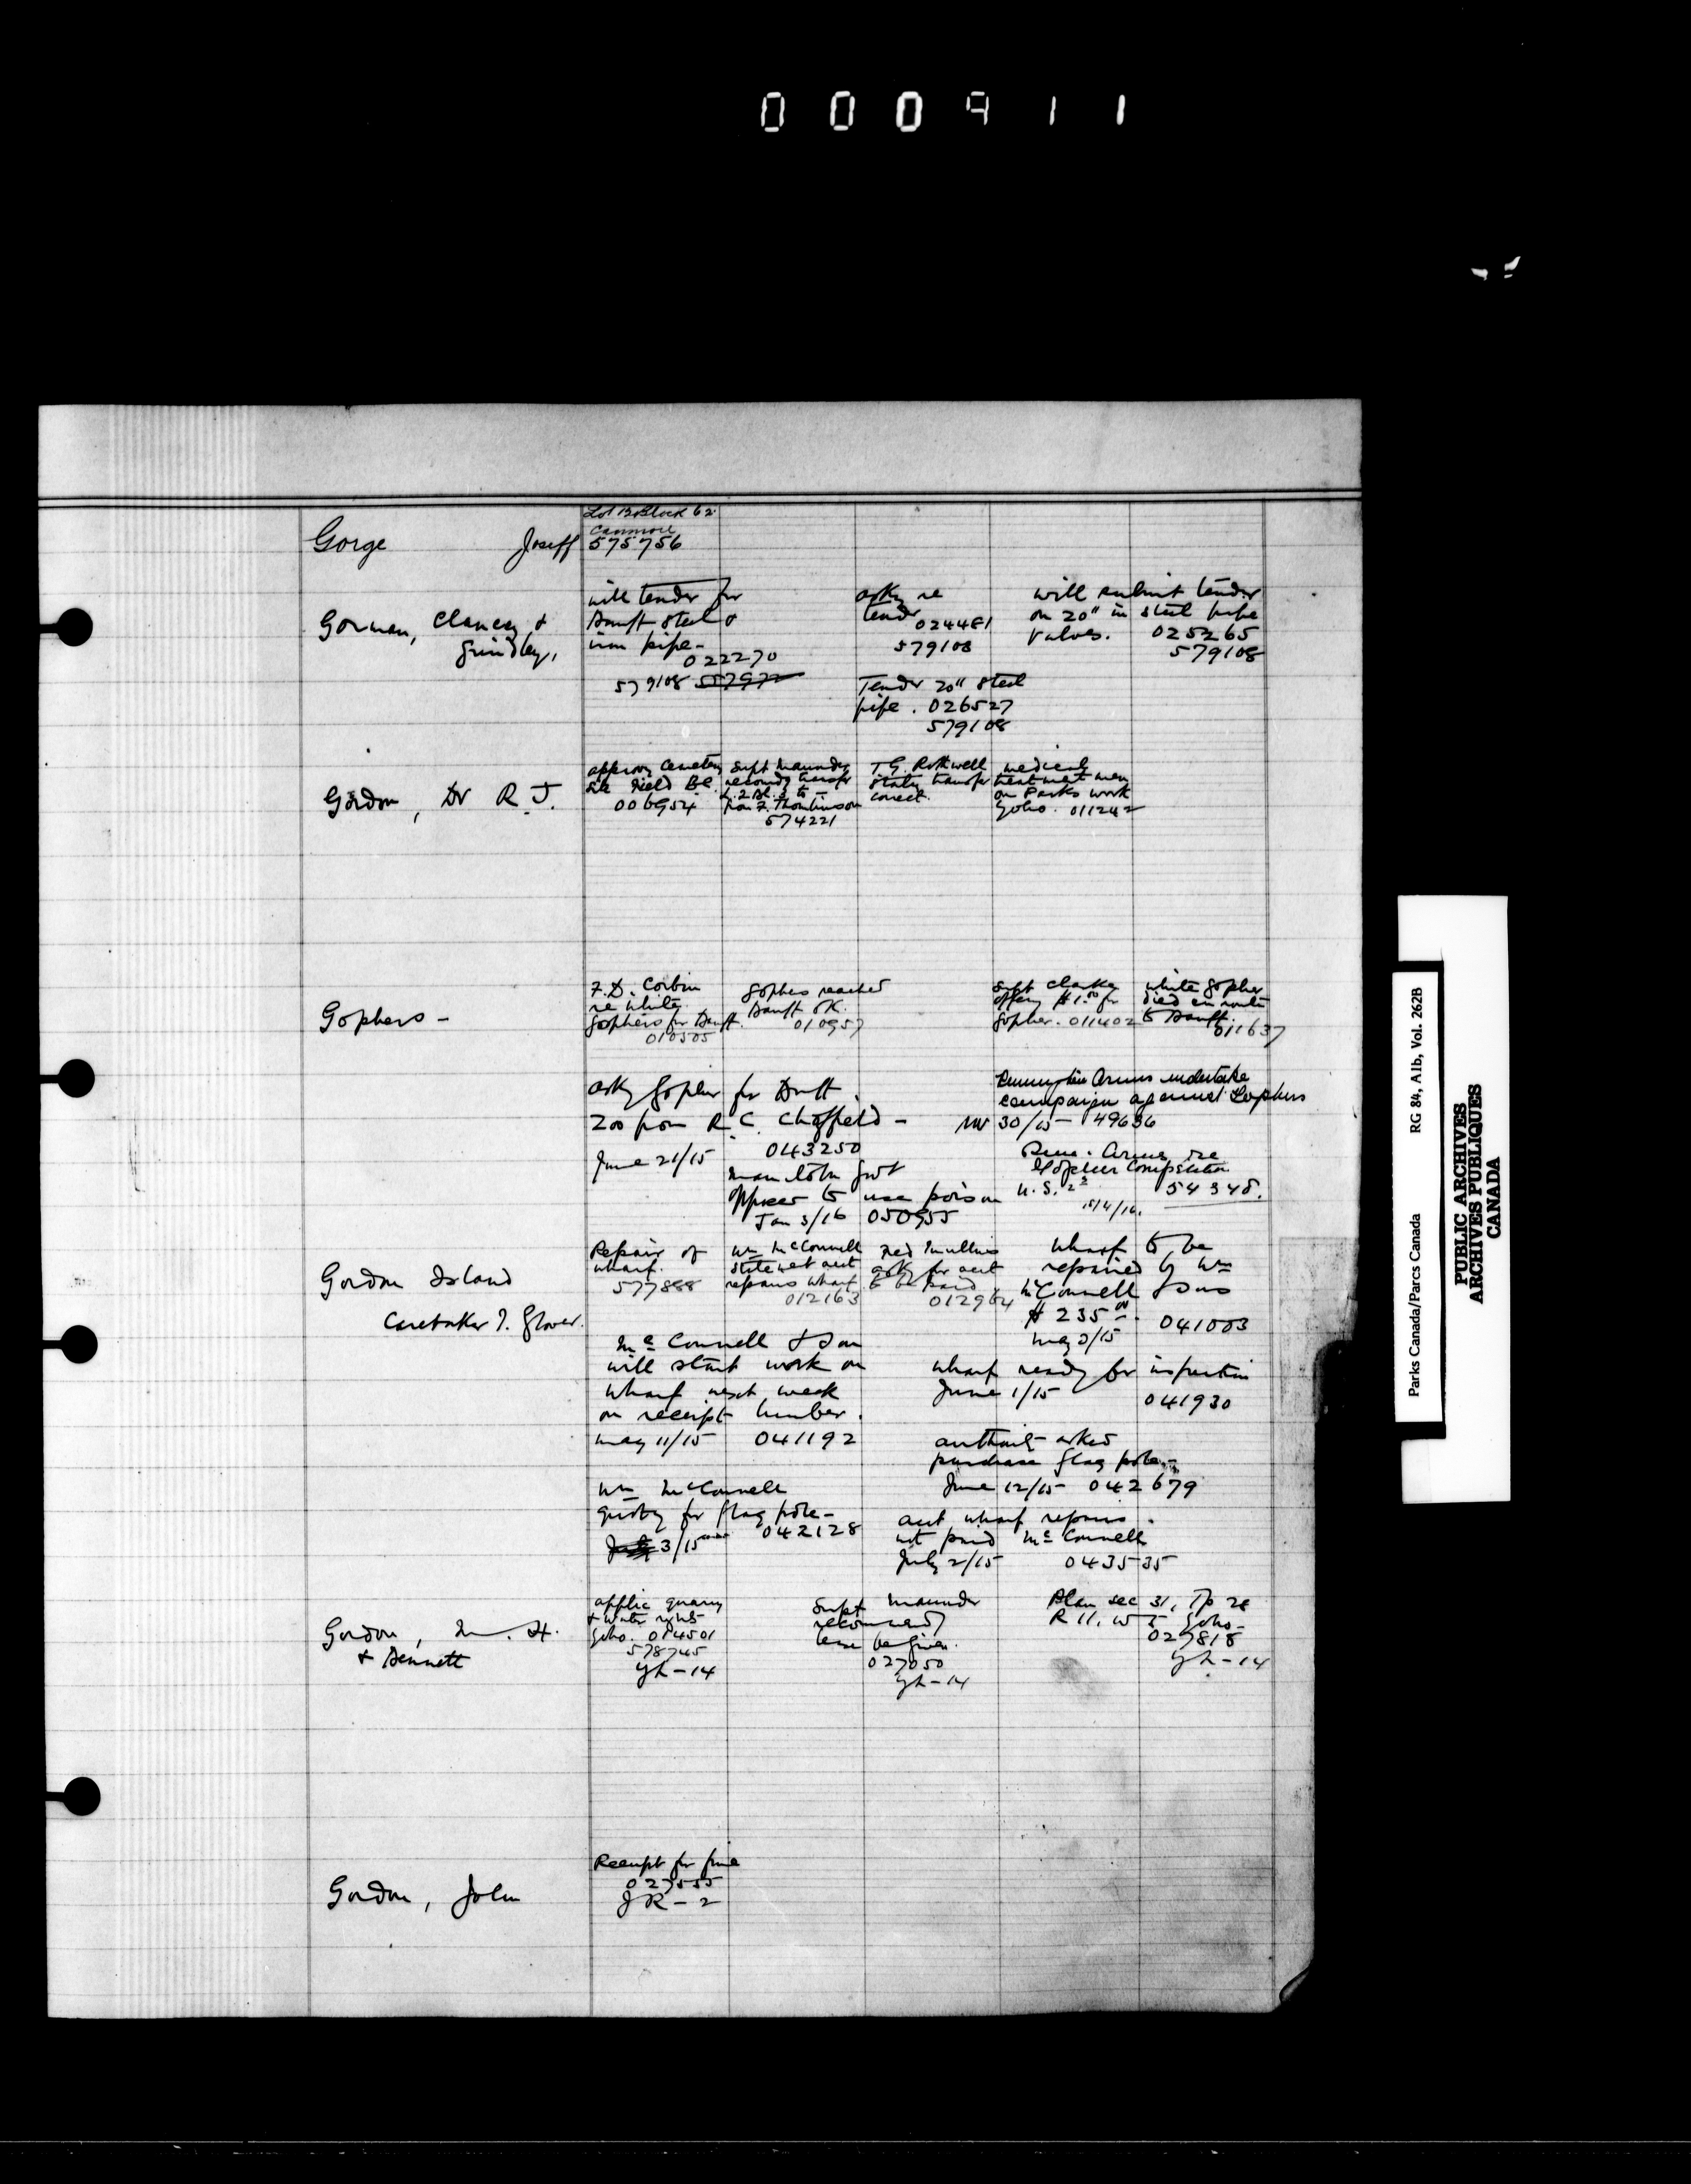 000911
Lot 12 Block 62
Canmore
Gorge Joseff 575756
Gorman, Clancey &
Grindley,
will tender for
Banff steel &
iron pipe -
022270
579108
asks re
tender
024481
579108
will submit tender
on 20" in steel pipe
valves. 025265
579108
Tender 20" steel
pipe. 026527
579108
Gordon, Dr R. J.
approves Cemetery
site Field BC.
006954
Supt Maunder
records transfer
L.2 Bl. 3 to -
from F. Thomlinson
574221
T G. Rothwell
states transfer
correct.
medical
treatment men
on Parks work
Yoho. 011242
Gophers -
F. D. Corbin
re white
gophers for Banff.
010505
Gophers reached
Banff OK.
010957
Supt Clarke
offering $1.00 for
gopher. 011402
white gopher
died en route
to Banff.
011637
asks gopher for Banff
Zoo from R. C. Chaffield -
June 21/15 043250
Remington Arms undertake
campaign against Gophers
Nov 30/15 - 149636
Manitoba Govt
offices to use poison
Jan 3/16 050955
Rem. Arms re
Gopher Competition
U.S. 22 54348.
15/4/16.
Gordon Island
Caretaker J. Glover.
Repair of
wharf.
577888
Wm McConnell
statement acct
repairs wharf
012163
Ned Smullins
asks for acct
to be paid
012964
Wharf to be
repaired by Wm
McConnell & Sons
$235.00
May 3/15 041003
McConnell & Son
will start work on
wharf next week
on receipt lumber.
May 11/15 041192
wharf ready for inspection
June 1/15 041930
authority asked
purchase flag pole -
June 12/15 - 042679
Wm McConnell
quoting for flag pole -
3/15 042128
acct wharf repairs.
not paid McConnell
July 2/15 043535
Gordon, M. H.
& Bennett
applic quarry
& water rights
Yoho. 014501
578745
Yh - 14
Supt Maunder
recommends
lease be given.
027050
Yh - 14
Plan sec 31, Tp 28
R 11, W 5 Yoho -
027818
Yh - 14
Gordon, John
Receipt for fine
027555
JR - 2
Parks Canada/Parcs Canada RG 84, A1b, Vol. 262B
PUBLIC ARCHIVES
ARCHIVES PUBLIQUES
CANADA